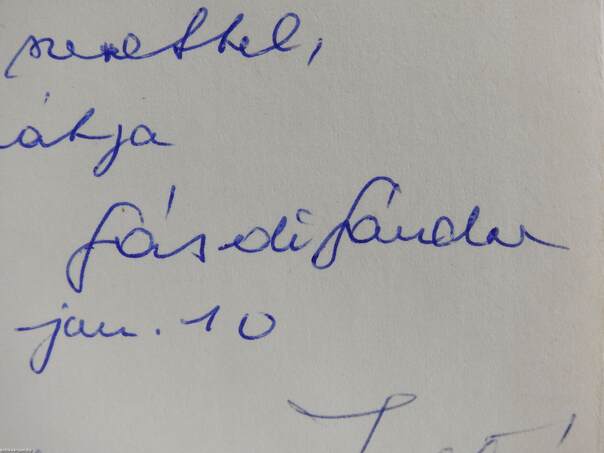 szerettel,
átja
Sásdi Sándor
jan. 10